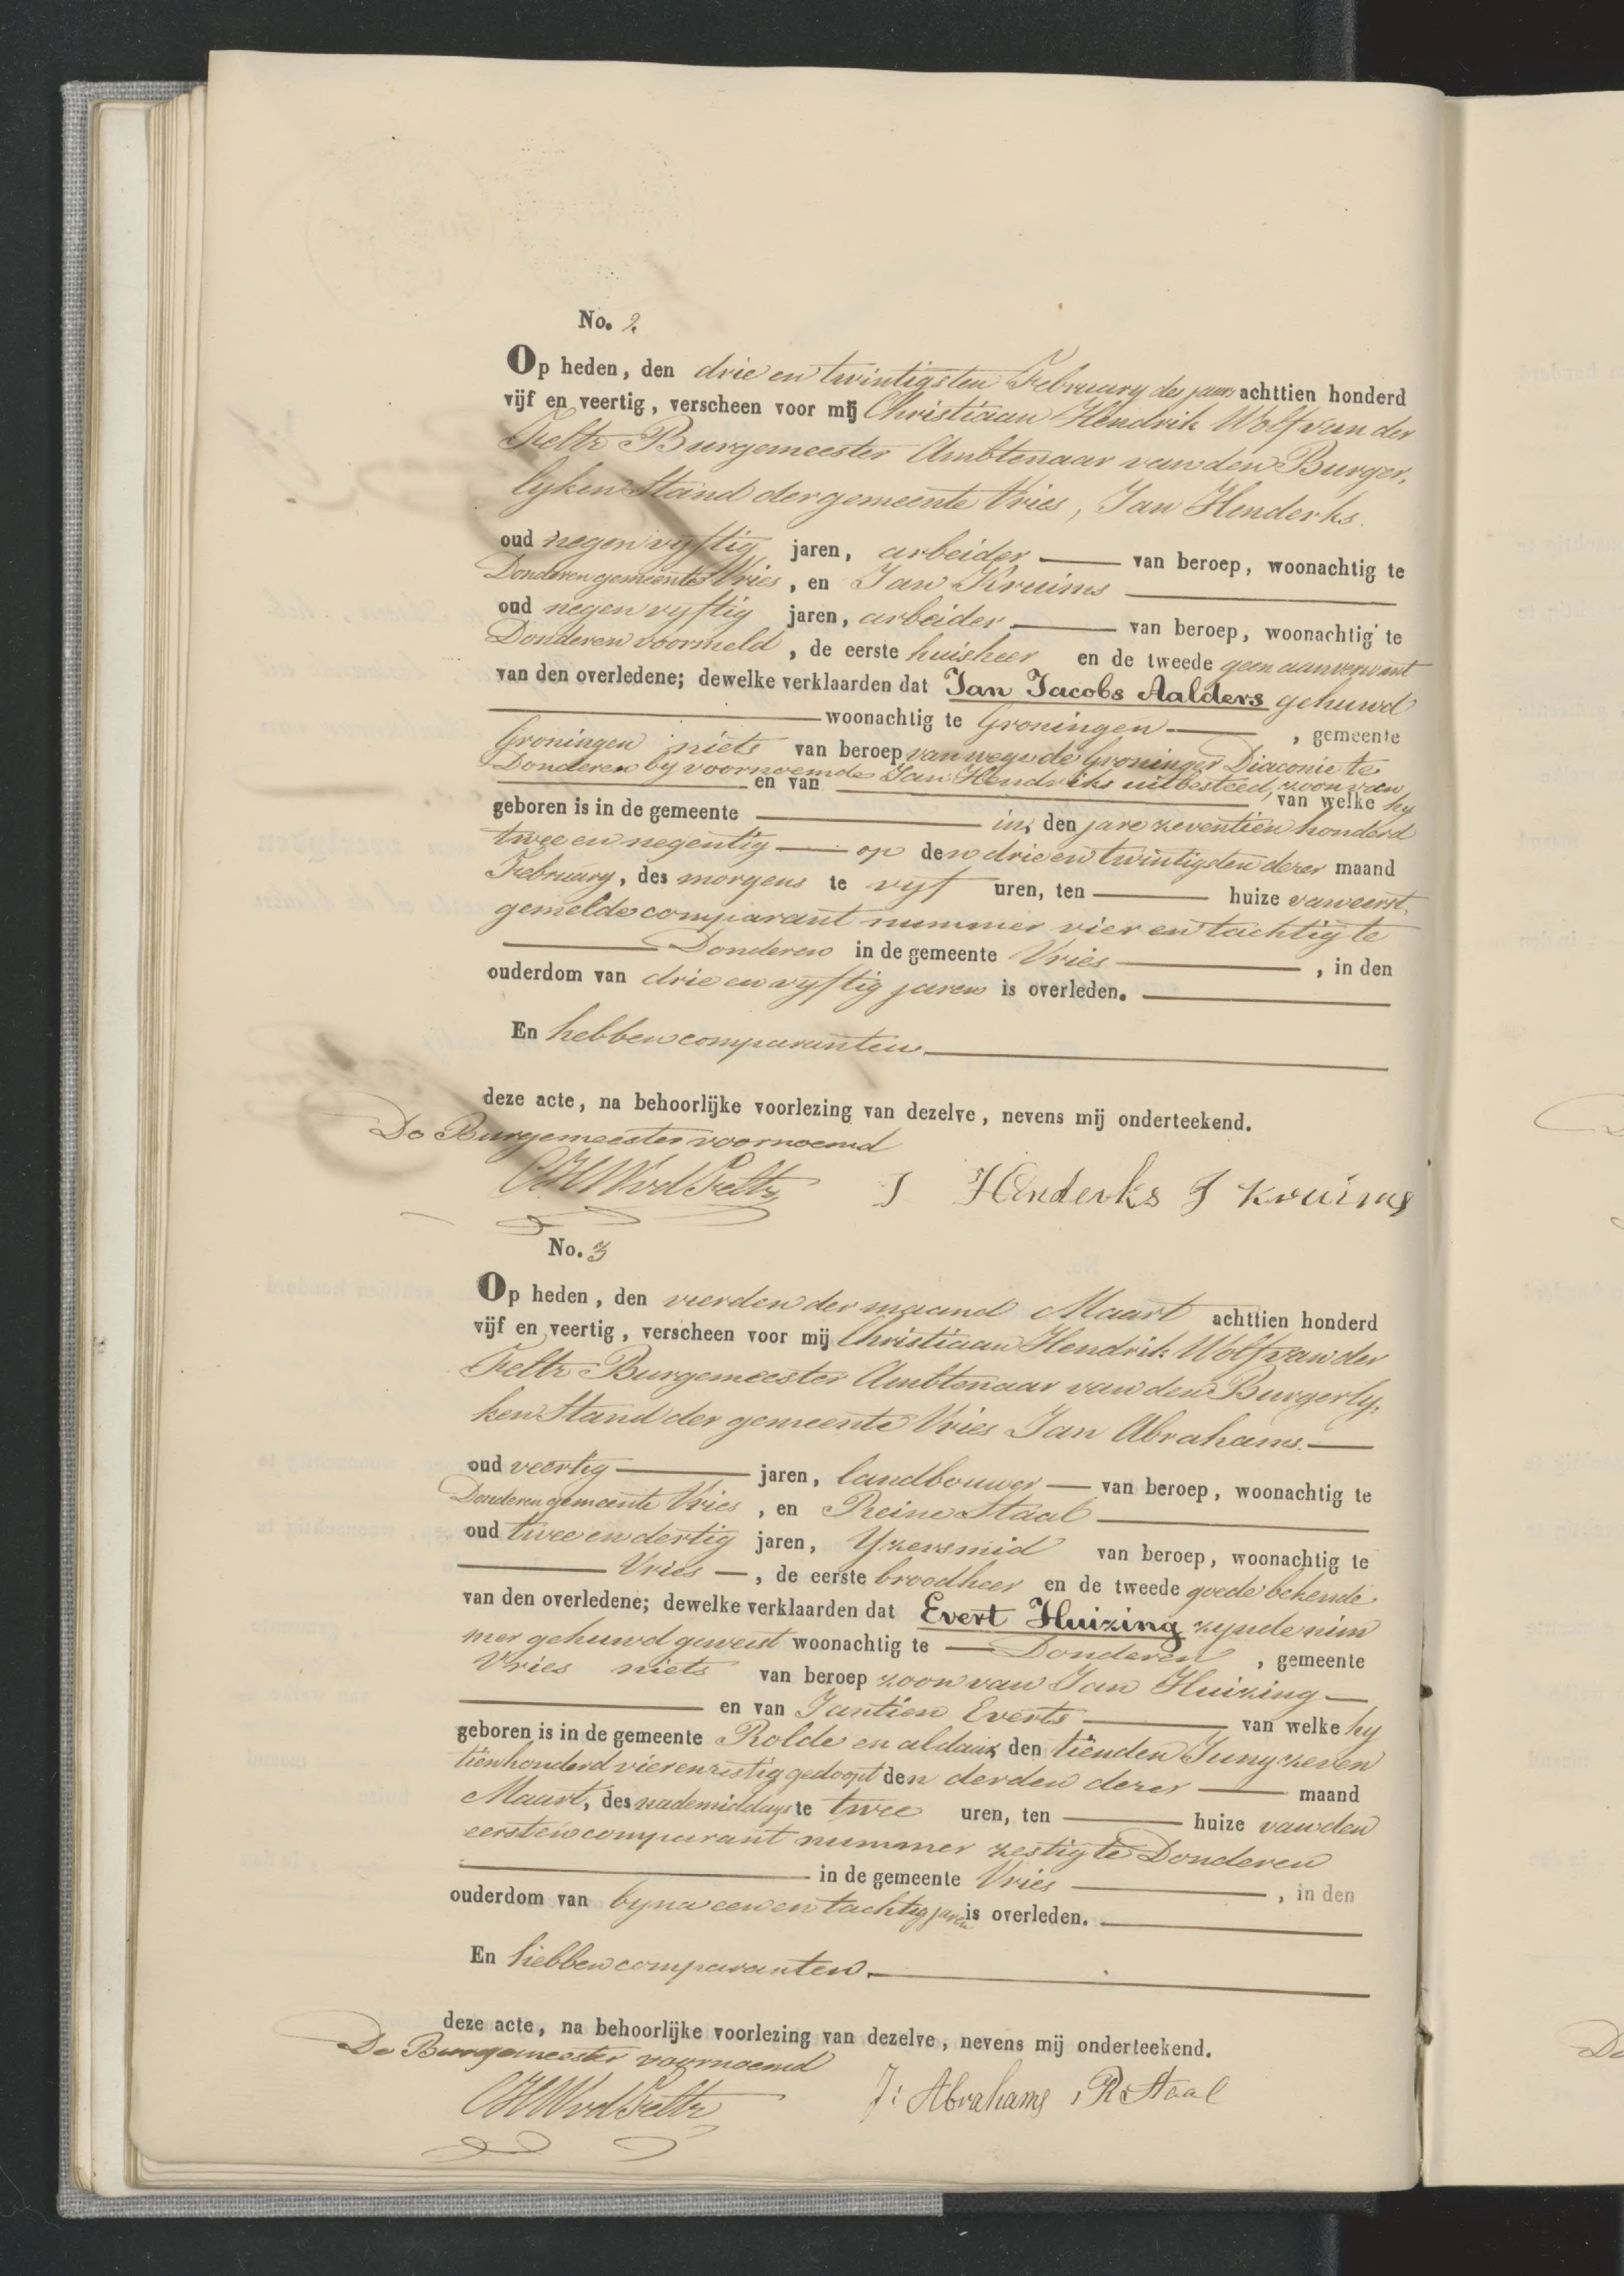 No. 2.
Op heden, den drie en twintigsten February des jaars achttien honderd
vijf en veertig, verscheen voor mij Christiaan Hendrik Wolf van der
Feltz Burgemeester Ambtenaar van den Burger,
lyken Stand der gemeente Vries, Jan Henderks.
oud negen vyftig jaren, arbeider van beroep, woonachtig te
Donderen gemeente Vries, en Jan Kruims
oud negen vyftig jaren, arbeider van beroep, woonachtig te
Donderen voormeld, de eerste huisheer en de tweede geen aanverwant
van den overledene; dewelke verklaarden dat Jan Jacobs Aalders gehuwd
woonachtig te Groningen, gemeente
Groningen niets van beroep van wege de Groninger Diaconie te
Donderen by voornoemde Jan Hendriks uitbesteed, zoon van
en van van welke hy
geboren is in de gemeente in, den jare zeventien honderd
twee en negentig op den drie en twintigsten dezer maand
February, des morgens te vyf uren, ten huize van eerst,
gemelde comparant nummer vier en tachtig te
Donderen in de gemeente Vries, in den
ouderdom van drie en vyftig jaren is overleden.
En hebben comparanten
deze acte, na behoorlijke voorlezing van dezelve, nevens mij onderteekend.
De Burgemeester voornoemd
CHWvdFeltz J Henderks J Kruims
No. 3
Op heden, den vierden der maand Maart achttien honderd
vijf en veertig, verscheen voor mij Christiaan Hendrik Wolf van der
Feltz Burgemeester Ambtenaar van den Burgerly,
ken Stand der gemeente Vries Jan Abrahams.
oud veertig jaren, landbouwer van beroep, woonachtig te
Donderen gemeente Vries, en Reine Staal
oud twee en dertig jaren, Yzersmid van beroep, woonachtig te
Vries, de eerste broodheer en de tweede goede bekende
van den overledene; dewelke verklaarden dat Evert Huizing zynde nim
mer gehuwd geweest woonachtig te Donderen, gemeente
Vries niets van beroep zoon van Jan Huizing
en van Jantien Everts van welke hy
geboren is in de gemeente Rolde en aldaar den tienden Juny zeven
tien honderd vier en zestig gedoopt den derden dezer maand
Maart, des nademiddags te twee uren, ten huize van den
eersten comparant nummer zestig te Donderen
in de gemeente Vries, in den
ouderdom van byna een en tachtig jaren is overleden.
En hebben comparanten.
deze acte, na behoorlijke voorlezing van dezelve, nevens mij onderteekend.
De Burgemeester voornoemd
CHWvdFeltz J: Abrahams, R Staal